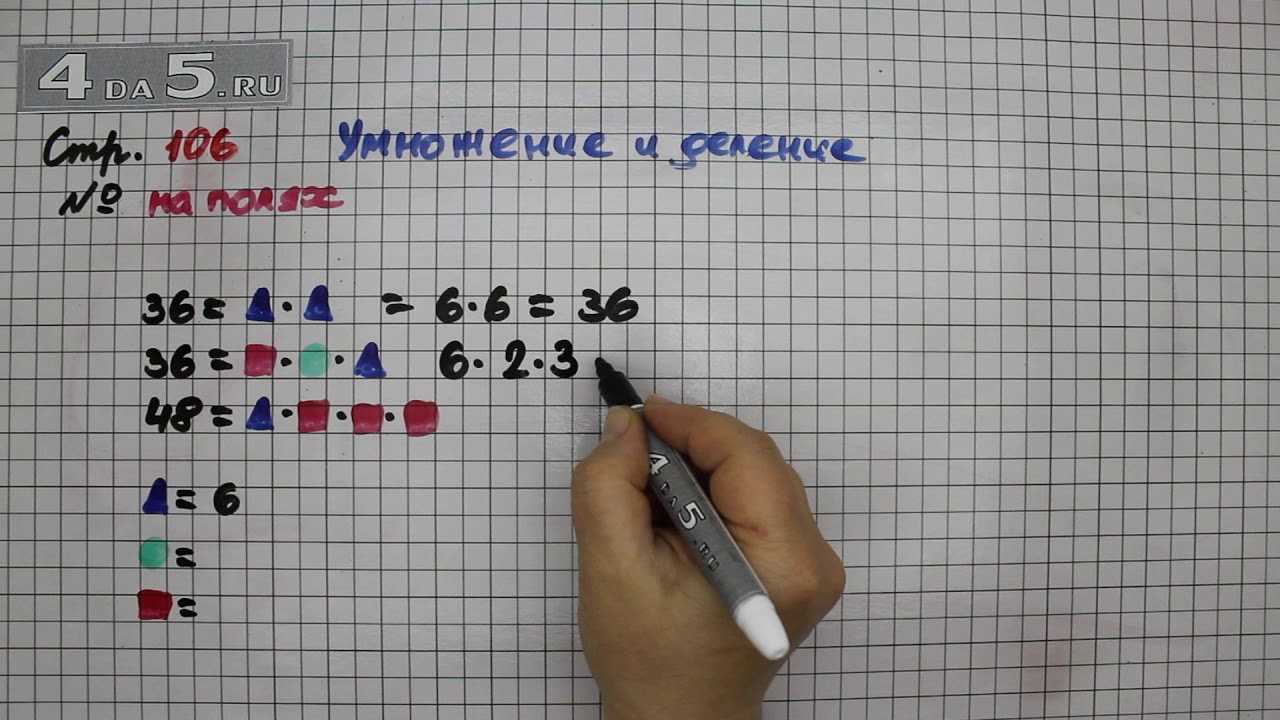 4 DA 5.RU
Стр. 106 Умножение и деление
№ на полях
36 = ▲ · ▲ = 6 · 6 = 36
36 = ■ · ● · ▲ 6 · 2 · 3
48 = ▲ · ■ · ■ · ■
▲ = 6
● =
■ =
4 DA 5.RU